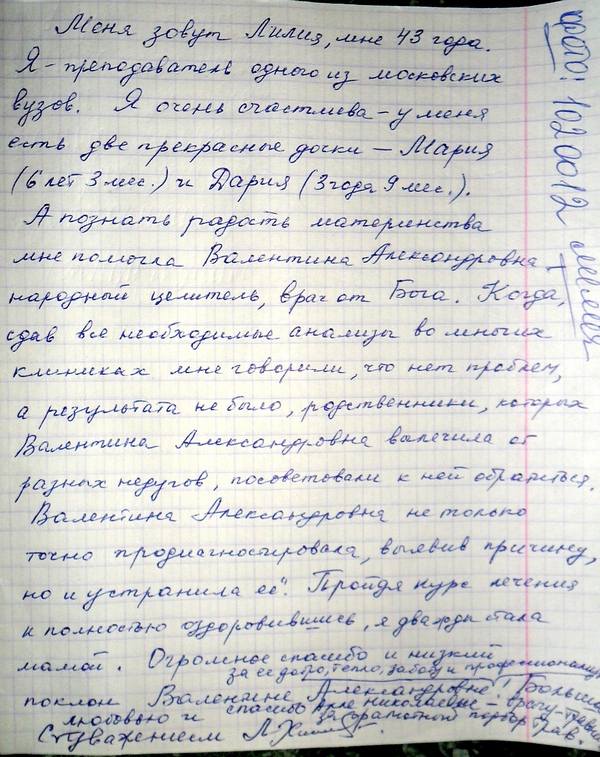 Меня зовут Лилия, мне 43 года.
Я - преподаватель одного из московских
вузов. Я очень счастлива - у меня
есть две прекрасные дочки - Мария
(6 лет 3 мес.) и Дария (3 года 9 мес.).
А познать радость материнства
мне помогла Валентина Александровна,
народный целитель, врач от Бога. Когда,
сдав все необходимые анализы во многих
клиниках мне говорили, что нет проблем,
а результата не было, родственники, которых
Валентина Александровна вылечила от
разных недугов, посоветовали к ней обратиться.
Валентина Александровна не только
точно продиагностировала, выявив причину,
но и устранила её. Пройдя курс лечения
и полностью оздоровившись, я дважды стала
мамой. Огромное спасибо и низкий
за её добро, тепло, заботу и профессионализм
поклон Валентине Александровне! Большое
спасибо Алле Николаевне - врачу-травнику
за грамотный подбор трав.
С любовью и
уважением Л.
фото: 1020012